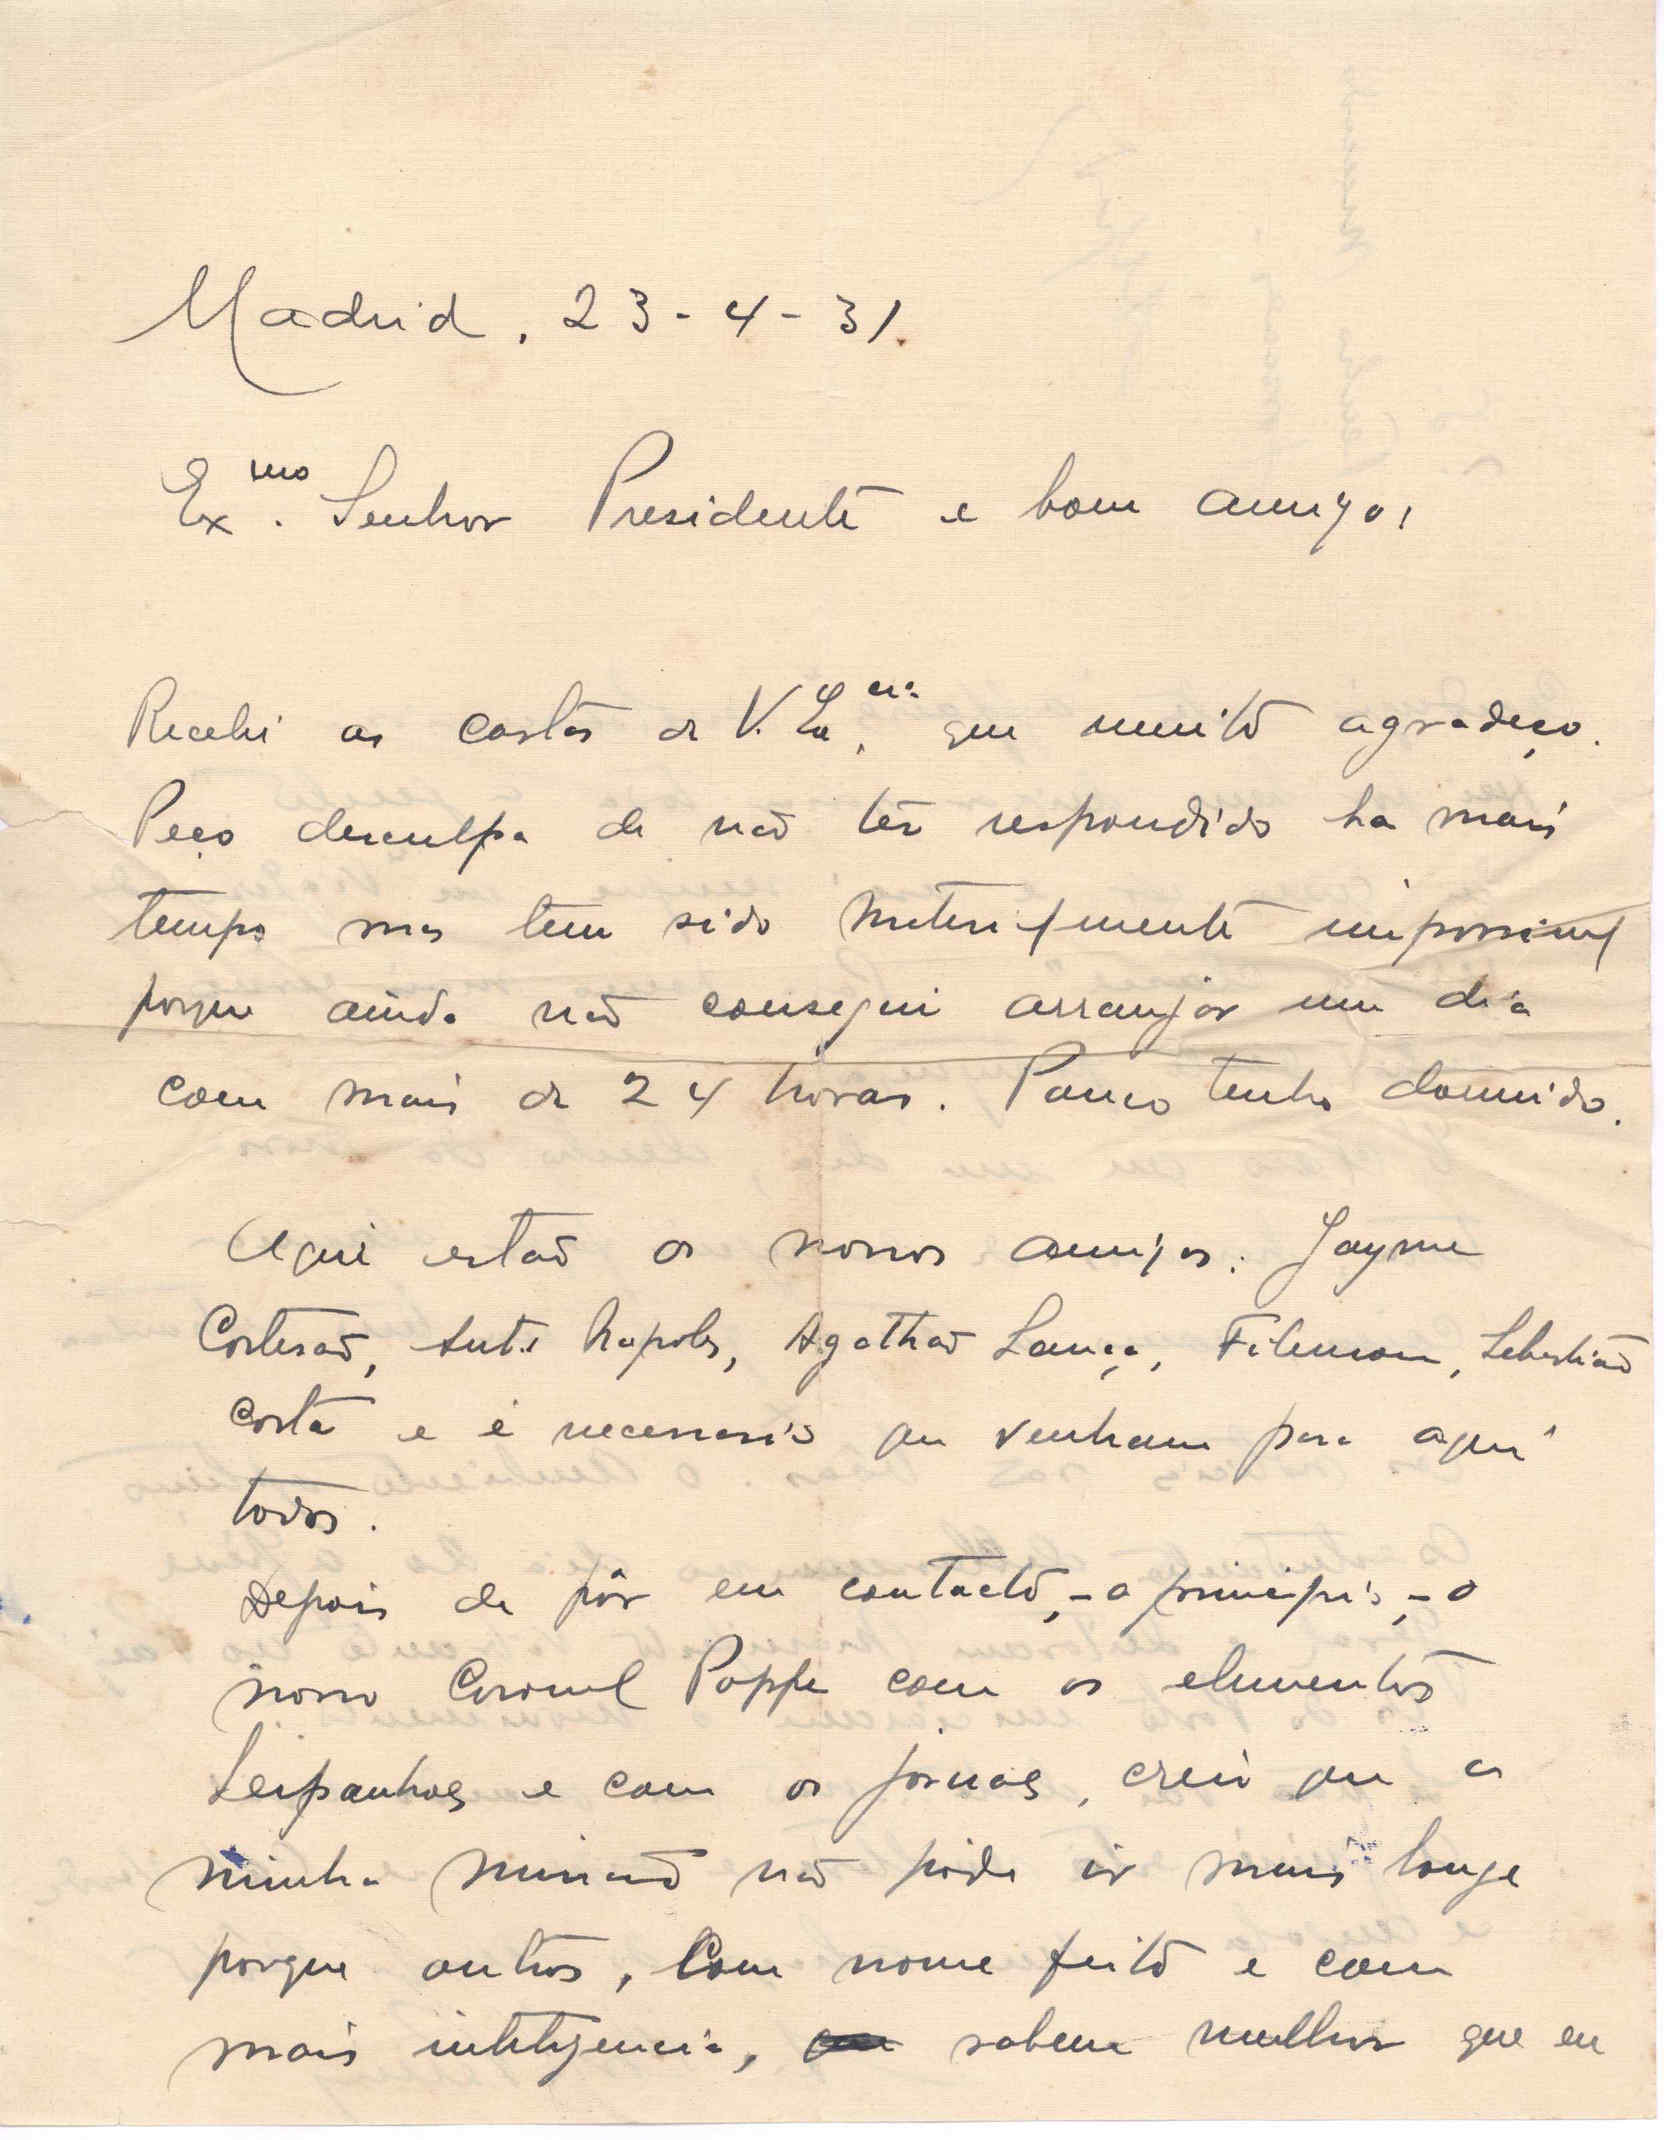 Madrid, 23-4-31.
Exmo. Senhor Presidente e bom amigo:
Recebi as cartas de V. Exa. que muito agradeço.
Peço desculpa de não ter respondido ha mais
tempo mas tem sido materialmente impossivel
porque ainda não consegui arranjar um dia
com mais de 24 horas. Pouco tenho dormido.
Aqui estão os nossos amigos: Jayme
Cortesão, Ant.o Napoles, Agathão Lança, Filemon, Sebastião
Costa e é necessario que venham para aqui
todos.
Depois de pôr em contacto, - a principio, - o
nosso Coronel Poppe com os elementos
Hespanhoes e com os jornaes, creio que a
minha missão não pode ir mais longe
porque outros, com nome feito e com
mais inteligencia, sabem melhor que eu